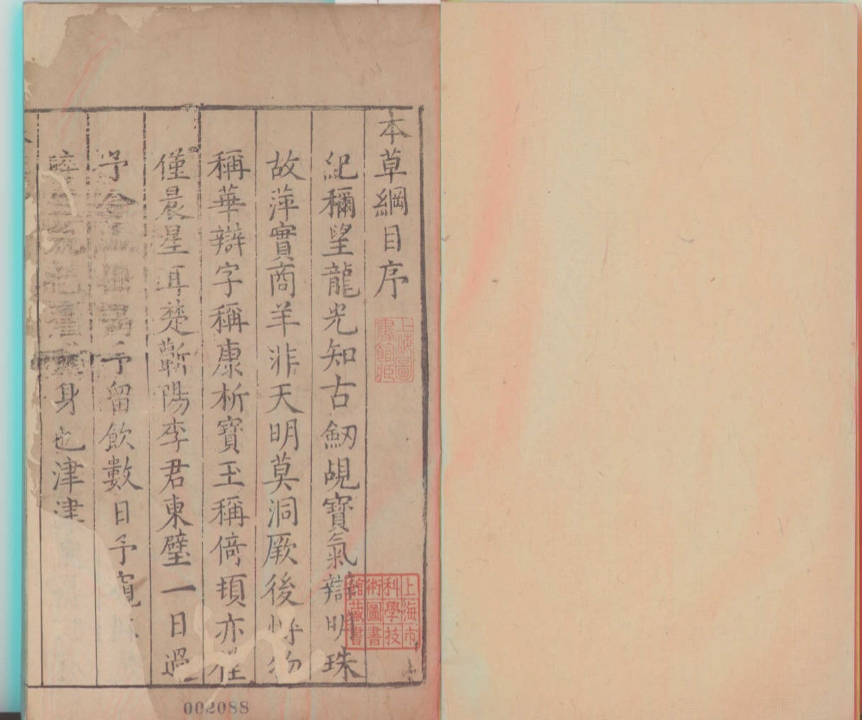 本草綱目序
紀稱望龍光知古劒覘寳氣辯明珠
故萍實商羊非天明莫洞厥後博物
稱華辯字稱康析寳玉稱倚頓亦僅
僅晨星耳楚蘄陽李君東璧一日過
予 予留飲數日予窺其
身也津津
上海圖書館藏
上海市科學技術圖書館藏書
002088